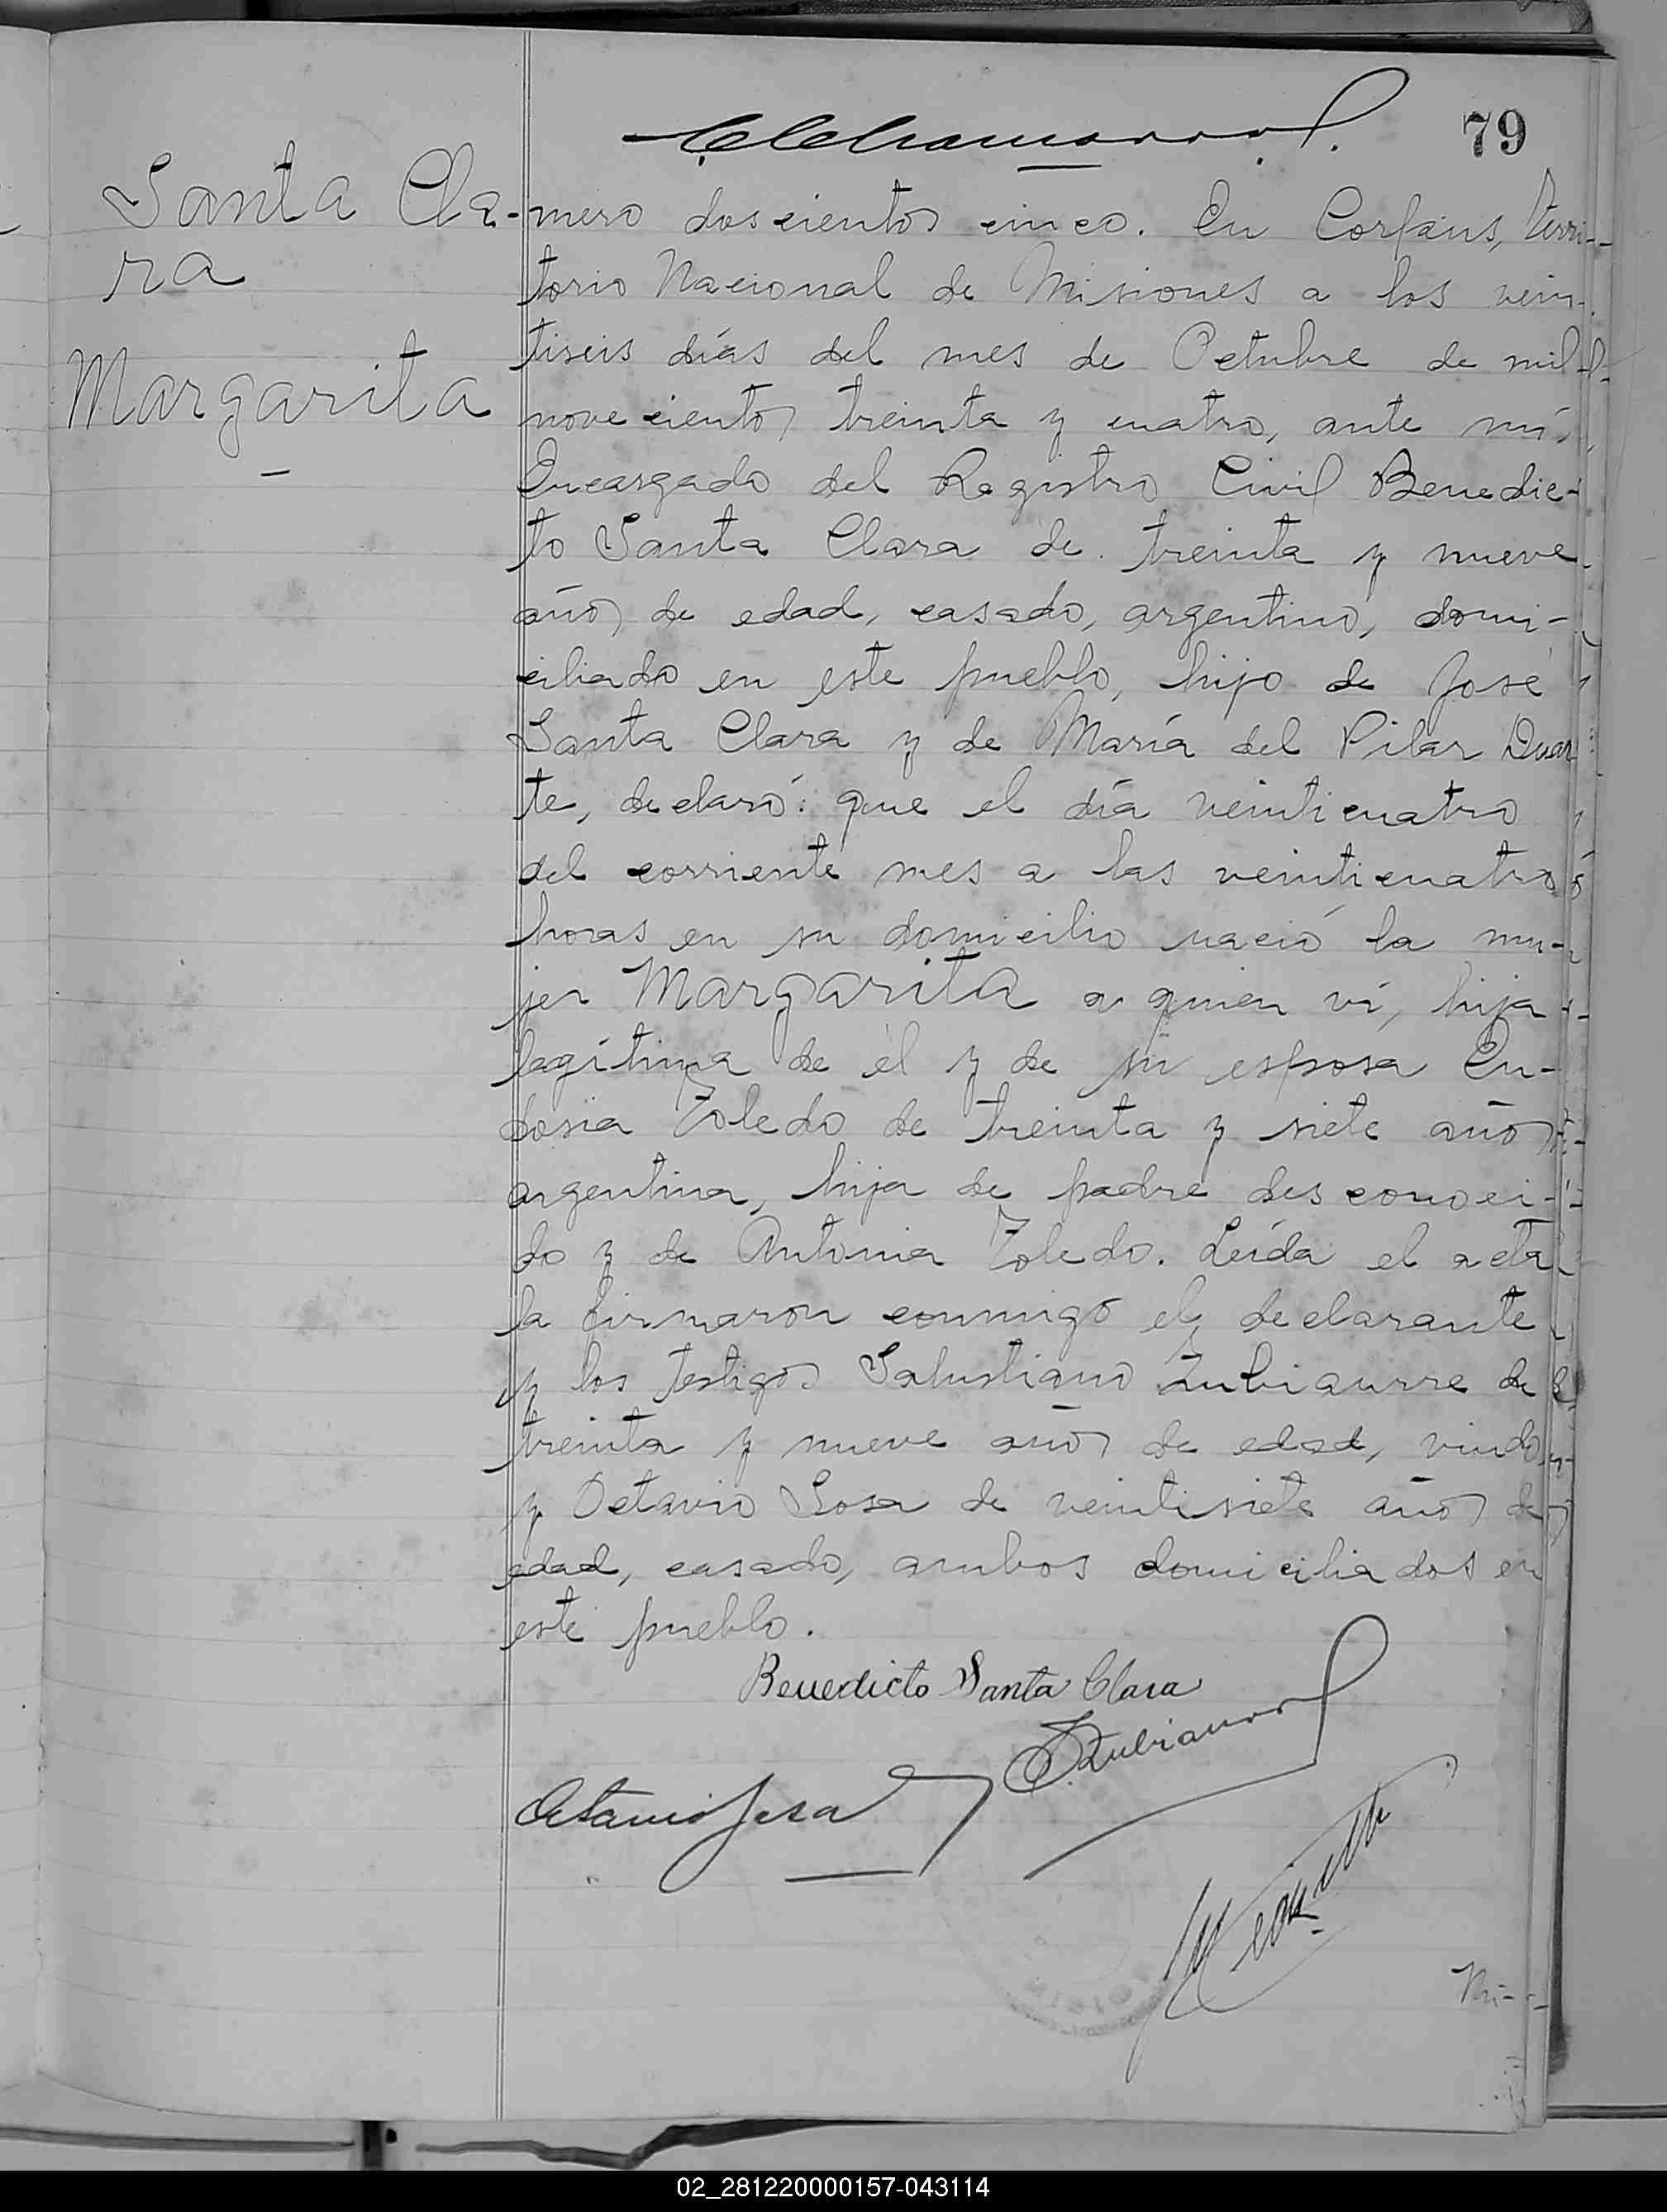 79
Santa Cla-
ra
Margarita
mero doscientos cinco. En Corpus, Terri-
torio Nacional de Misiones a los vein-
tiseis días del mes de Octubre de mil
novecientos treinta y cuatro, ante mí,
Encargado del Registro Civil Benedic-
to Santa Clara de treinta y nueve
años de edad, casado, argentino, domi-
ciliado en este pueblo, hijo de José
Santa Clara y de María del Pilar Duar
te, declaró: que el día veinticuatro
del corriente mes a las veinticuatro
horas en su domicilio nació la mu-
jer Margarita a quien ví, hija
legítima de él y de su esposa Eu-
dosia Toledo de treinta y siete años
argentina, hija de padre desconoci-
do y de Antonia Toledo. Leída el acta
la firmaron conmigo el declarante
y los testigos Salustiano Zubiaurre de
treinta y nueve años de edad, viudo
y Octavio Sosa de veintisiete años de
edad, casado, ambos domiciliados en
este pueblo.
Benedicto Santa Clara
Octavio Sosa
02_281220000157-043114